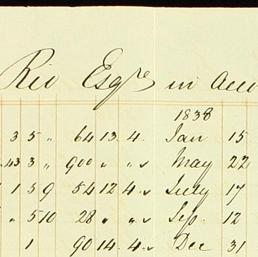 Rio Esqre in Acco
1838
3 5 " 64 13 4 Jan 15
43 3 " 900 " " May 22
1 5 9 54 12 4 July 17
" 5 10 28 " " Sep. 12
1 90 14 4 Dec 31